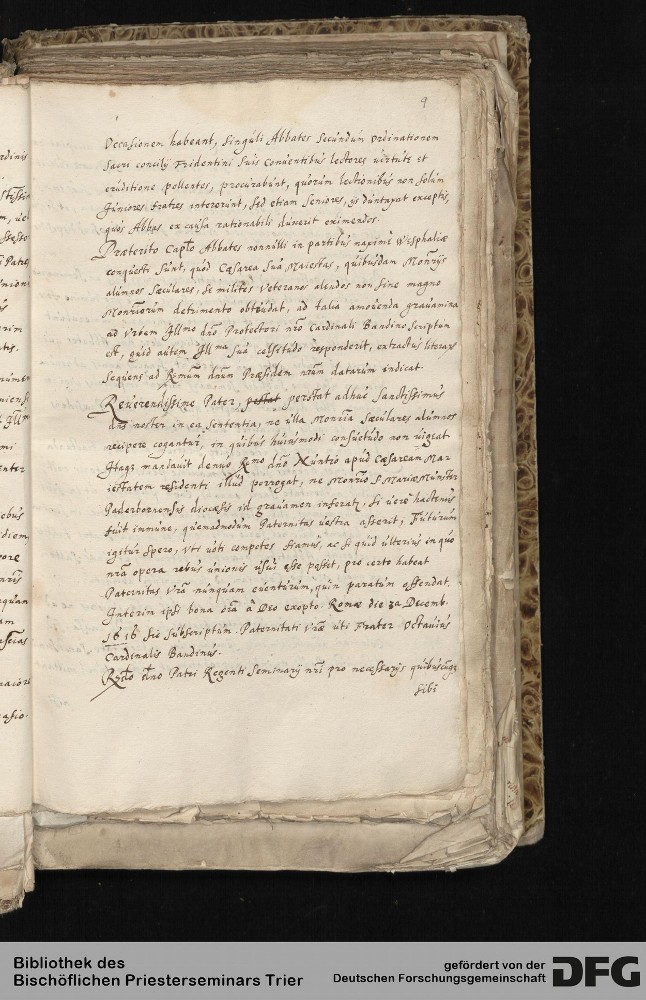 9
Occasionem habeant, singuli Abbates secundum ordinationem
sacri concilij Tridentini suis conuentibus lectores uirtute et
eruditione pollentes, procurabunt, quorum lectionibus non solum
Juniores fratres intererunt, sed etiam seniores, ijs duntaxat exceptis,
quos Abbas ex causa rationabili duxerit eximendos.
Præterito Capto Abbates nonnulli in partibus maximè Wesphaliæ
conquesti sunt, quòd Cæsarea sua Maiestas, quibusdam Monrijs
alumnos sæculares, se milites veteranos alendos non sine magno
Monriorum detrimento obtrudat, ad talia amouenda grauamina
ad vrbem Illmo dno Protectori nro Cardinali Bandino scriptum
est, quid autem Illma sua celsitudo responderit, extractus literarum
sequens ad Rmum dnum Præsidem nrum datarum indicat.
Reuerendissime Pater, perstat adhuc Sanctissimus
dns noster in ea sententia, ne ulla Monria sæculares alumnos
recipere cogantur, in quibus huiusmodi consuetudo non uigeat.
Itaq mandauit denuò Rmo dno Nuntio apud Cæsaream Ma-
iestatem residenti illud porrogat, ne Monrio S. Mariæ Münster
Paderbornensis diocæsis id grauamen inferat, si uerè hactenus
fuit immune, quemadmodum Paternitas uestra asserit, Futurum
igitur spero, vti uoti compotes fiamus, ac si quid ulterius in quo
nra opera rebus unionis usui esse possit, pro certo habeat
Paternitas vra nunquam euenturum, quin paratum offendat.
Interim ipsi bona oia à Deo exopto. Romæ die 32 Decemb.
1616 sic subscriptum. Paternitati vræ uti Frater Octauius
Cardinalis Bandinus.
Rdo dno Patri Regenti Seminarij nri pro necessarijs quibuscuq
sibi
Bibliothek des
Bischöflichen Priesterseminars Trier
gefördert von der
Deutschen Forschungsgemeinschaft
DFG